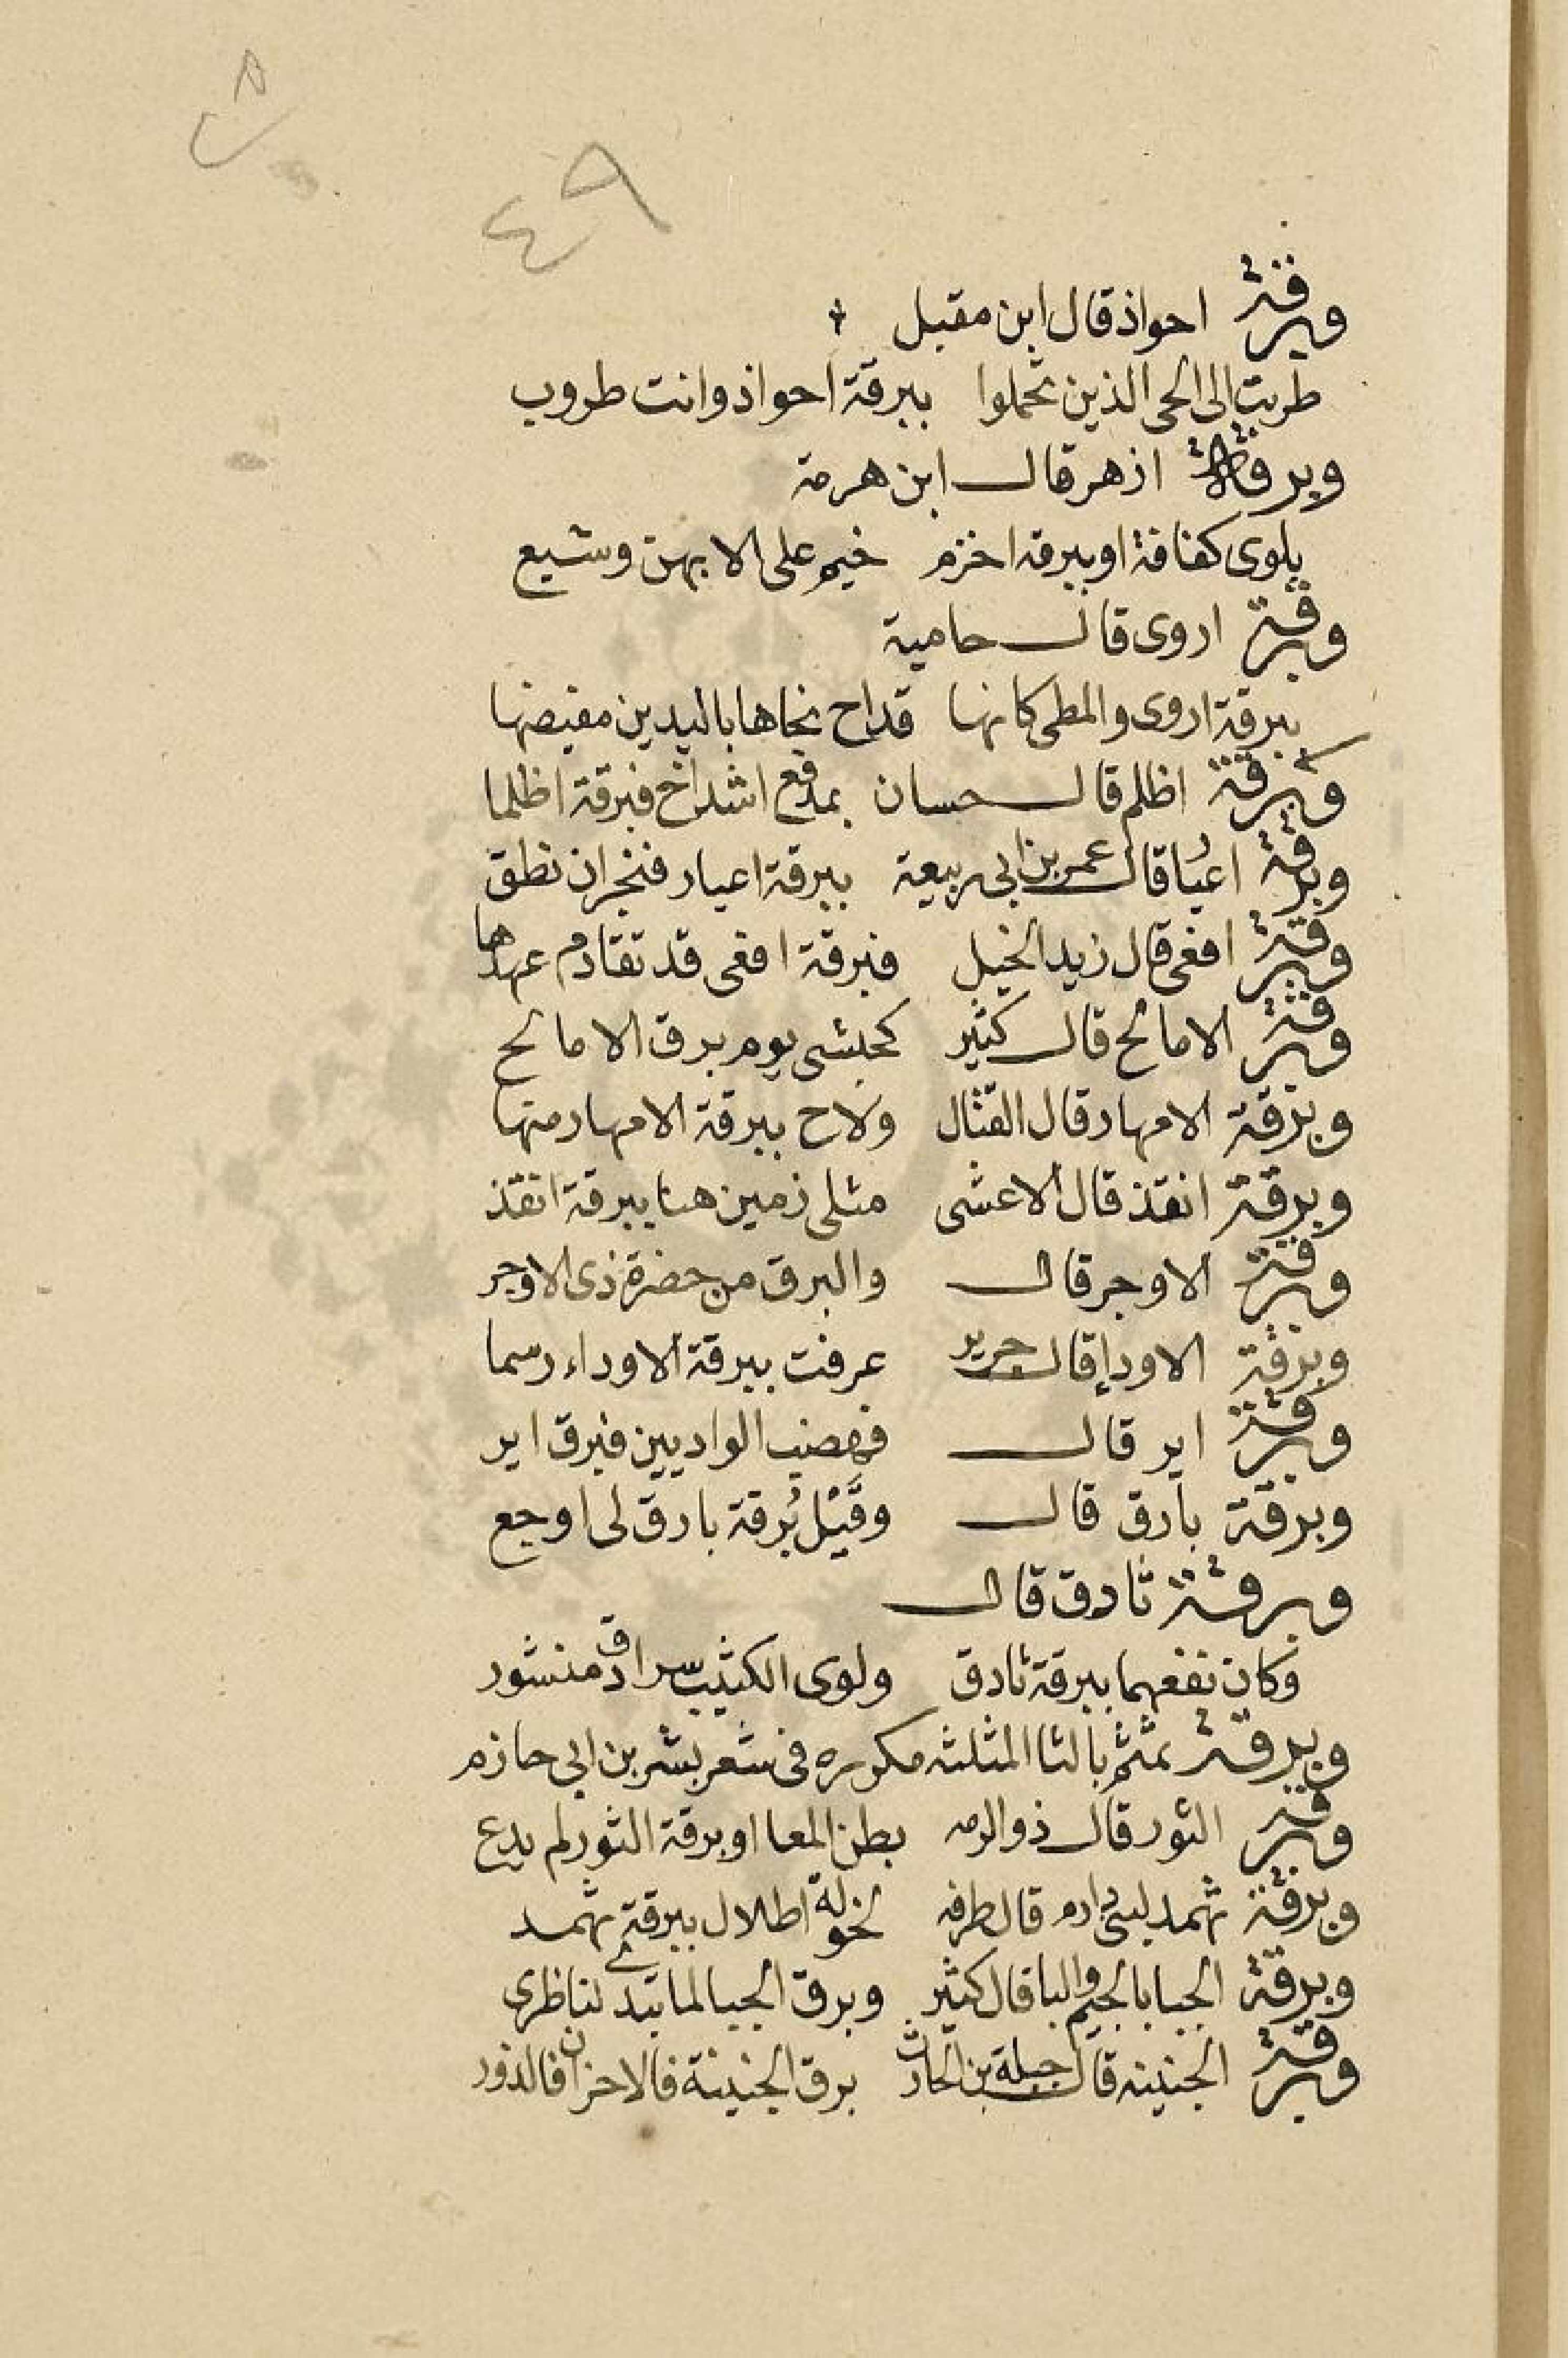 ٨
٤٩
وبرقة احواذ قال ابن مقبل
طربت الى الحى الذين تحملوا ببرقة احواذ وانت طروب
وبرقة ازهر قال ابن هرمة
بلوى كفافة او ببرقة اخزم خيم على الا بهن وشيع
وبرقة اروى قال حامية
ببرقة اروى والمطى كانها قداح نحاها باليدين مفيضها
وبرقة اظلم قال حسان بمدفع اشداخ فبرقة اظلما
وبرقة اعيا قال عمر بن ابى ربيعة ببرقة اعيار فنجران نطق
وبرقة افعى قال زيد الخيل فبرقة افعى قد تقادم عهدها
وبرقة الامالح قال كثير كحبشى يوم برق الامالح
وبرقة الامهار قال القتال ولاح ببرقة الامهار منها
وبرقة انقذ قال الاعشى مثلى زمين هنا ببرقة انقذ
وبرقة الاوجر قال والبرق من حضرة ذى الاوجر
وبرقة الاودا قال جرير عرفت ببرقة الاوداء رسما
وبرقة اير قال فهضب الواديين فبرق اير
وبرقة بارق قال وقتل برقة بارق لى اوجع
وبرقة ثادق قال
وكان نفعهما ببرقة ثادق ولوى الكثيب سرادق منشور
وبرقة ثمثم بالثا المثلثه مكرره فى شعر بشر بن ابى حازم
وبرقة الثور قال ذو الرمه بطن المعا او برقة الثور لم يدع
وبرقة ثهمد لبنى دارم قال طرفه لخولة اطلال ببرقة ثهمد
وبرقة الجبا بالجيم والبا قال كثير وبرق الجبا لما تبد لنا ظرى
وبرقة الجنينه قال جبلة بن الحارث برق الجنينة فالاخزان فالدور